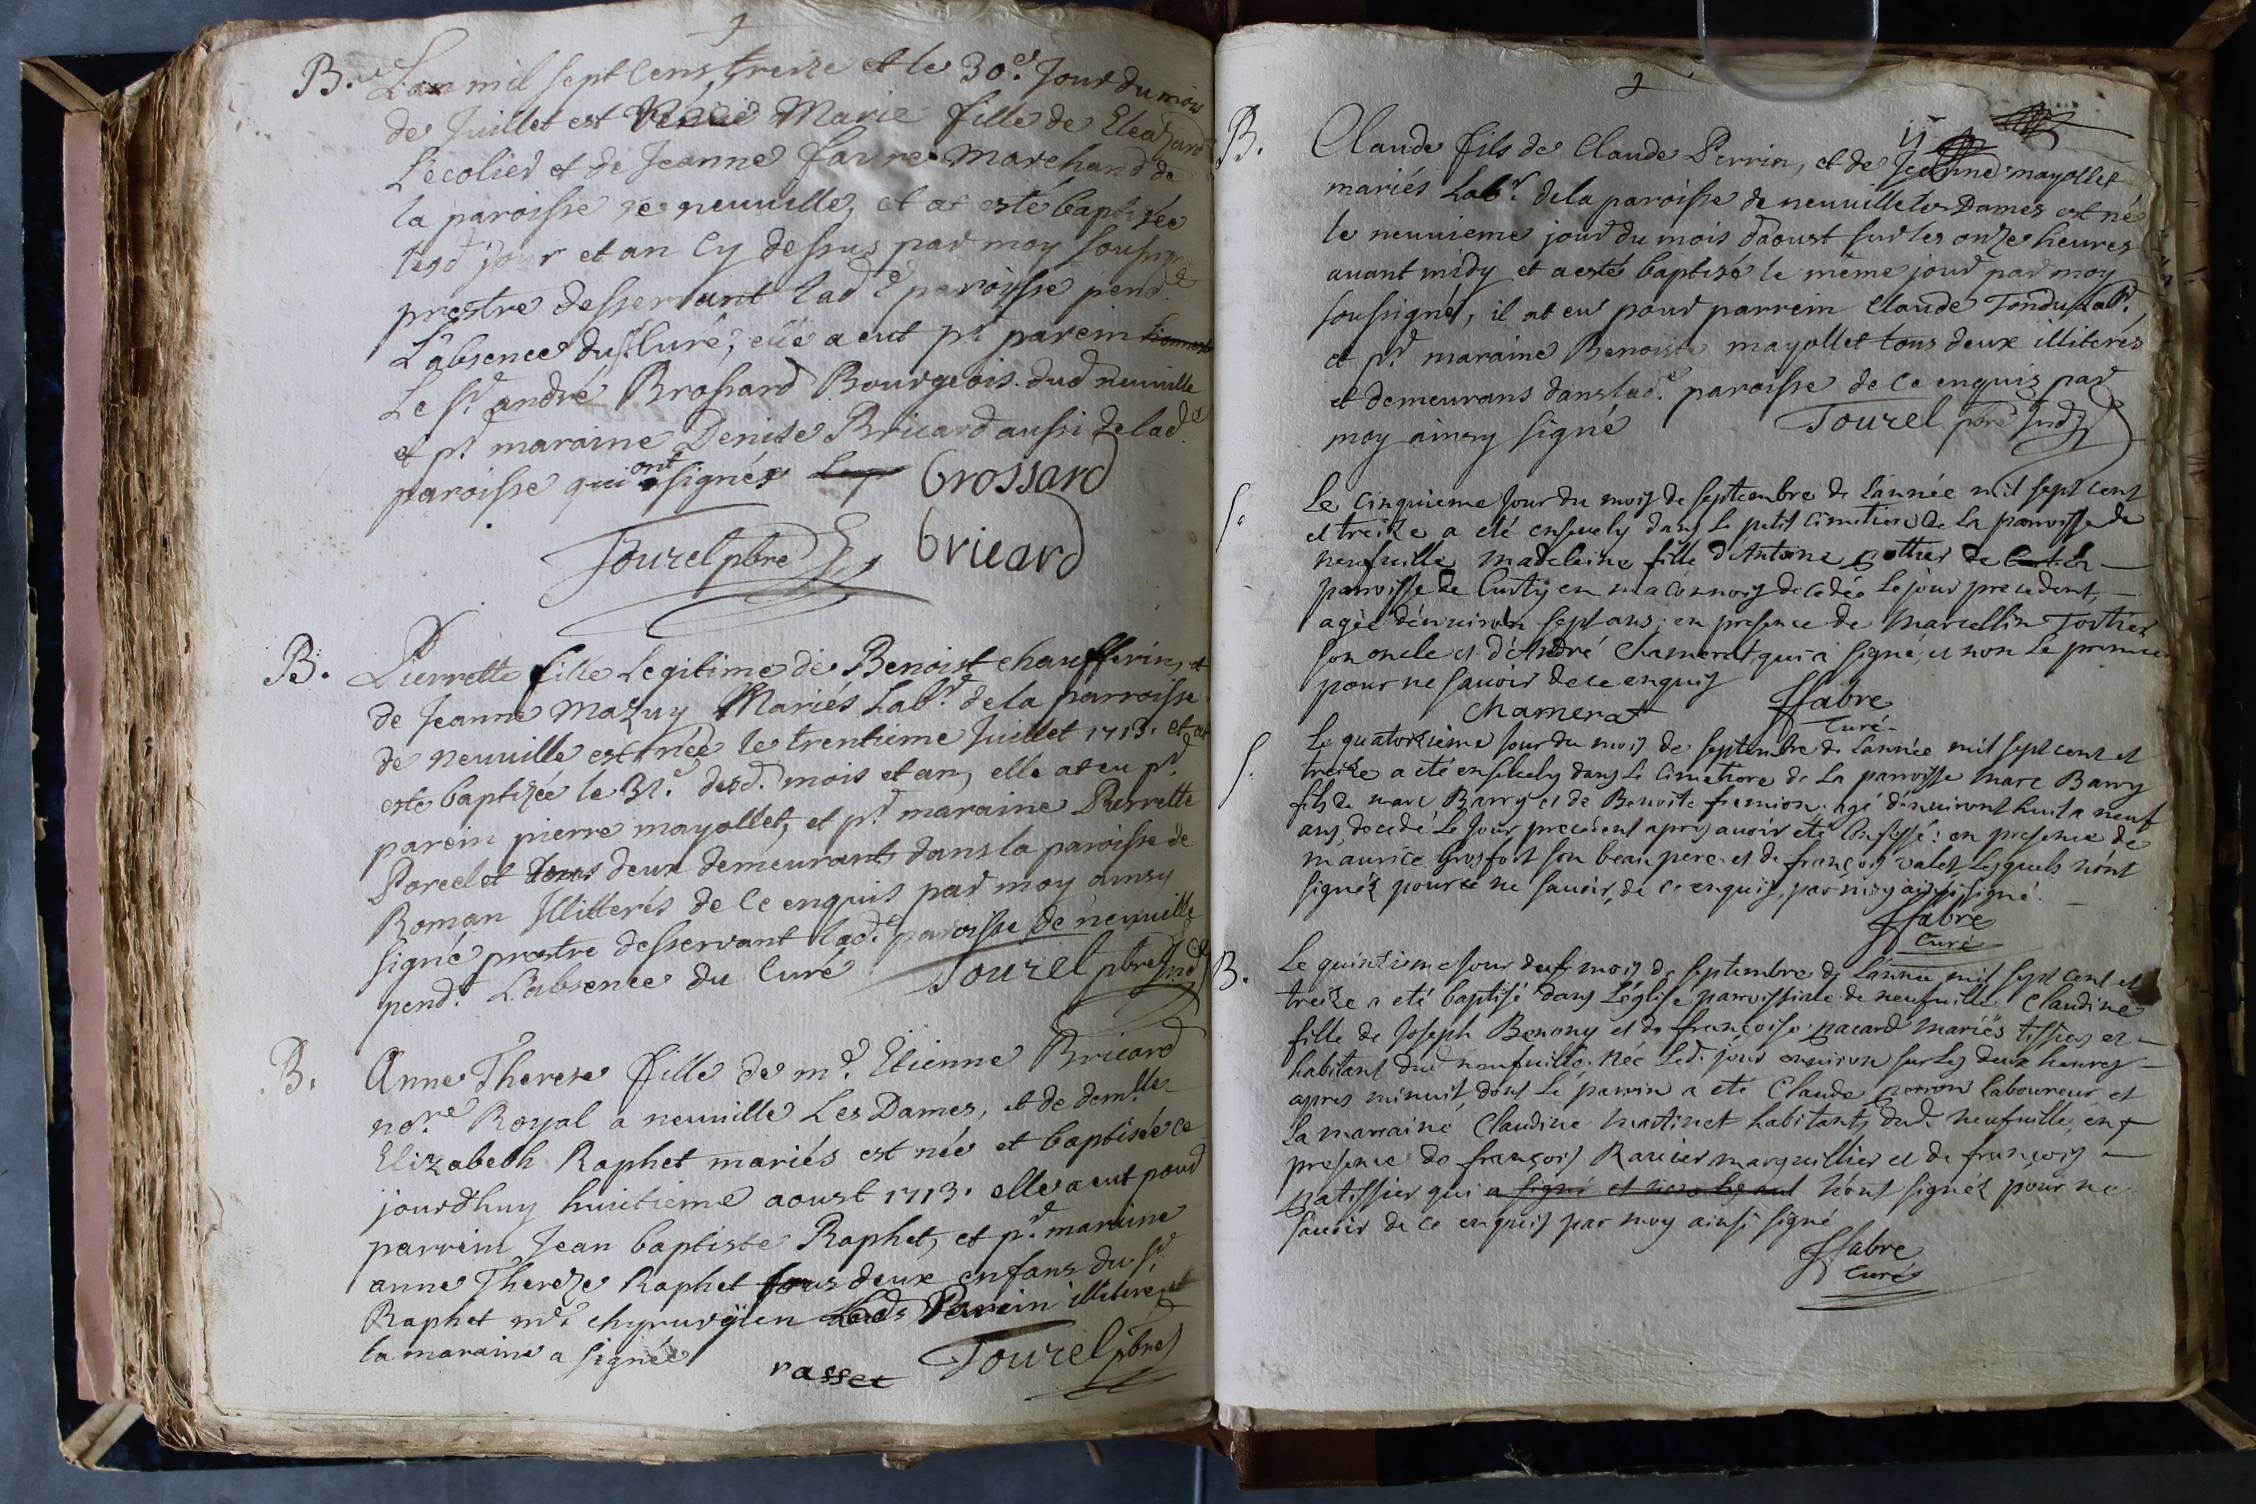 B. Lan mil sept cens treize et le 30.e jour du mois
de Juillet est Marie fille de Eleazard
Lecolier et de Jeanne favre Marchand de
la paroisse de neuuille, et at esté baptisée
lesd jour et an Cy dessus par moy soussigné
prestre desservant lad.e paroisse pend.t
L'absence du Sr Curé, elle a eut pr parein
Le Sr andré Brossard Bourgeois dud neuuille
et pr maraine Denise Bricard aussi de lad.e
paroisse qui ont signés
brossard
Tourel pbre bricard
B. Pierrette fille legitime de Benoist chaufferin, et
de Jeanne Mazuy Mariés Labr. de la parroisse
de neuuille est née le trentieme Juillet 1713. et at
esté baptizée le 31.e desd. mois et an, elle at eu pr
parein pierre mayollet, et pr maraine Pierrette
Parcelet tous deux demeurants dans la paroisse de
Roman Illitterés de ce enquis par moy ainsy
signé prestre desservant lad.e paroisse de neuuille
pend.t L'absence du Curé Tourel pbre
B. Anne Therese fille de mr. Etienne Bricard
nore. Royal a neuuille Les Dames, et de demlle
Elizabeth Raphet mariés est née et baptisée ce
jourdhuy huictieme aoust 1713. elle a eut pour
parrein Jean baptiste Raphet, et pr. maraine
anne Thereze Raphet tous deux enfans du Sr
Raphet mre chyrurgien Parein illiteré et
la maraine a signée
rasset Tourel pbre
B. Claude fils de Claude Perrin, et de Jeanne mayollet
mariés Labr. de la paroisse de neuuille les Dames est né
le neuuieme jour du mois daoust sur les onze heures
auant midy et a esté baptizé le même jour par moy
soussigné, il at eu pour parrein Claude Tondu Labr.
et pr. maraine Benoiste mayollet tous deux illiterés
et demeurans dans lad.e paroisse de ce enquis par
moy ainsy signé Tourel pbre
S. Le cinquieme Jour du mois de septembre de L'année mil sept cent
et treize a eté enseuely dans Le petit cimetiere de La parroisse de
neufuille madeleine fille d'Antoine de
parroisse de Curtij en maconnois decedée Le jour precedent,
agée d'enuiron sept ans; en presence de Marcellin
son oncle et d'André Chamerat, qui a signé, et non Le premier
pour ne sauoir de ce enquis ffabre
chamerat Curé
S. Le quatorzieme Jour du mois de septembre de L'année mil sept cent et
treize a eté enseuely dans Le cimetiere de La parroisse marc Barry
fils de marc Barry et de Benoite fremion agé d'enuiront huit a neuf
ans decedé Le Jour precedent apres auoir eté Confessé: en presence de
maurice Grosfort son beau pere et de françois valet Lesquels n'ont
signéz pour ne sauoir, de ce enquis, par moy ainsi signé.
ffabre
Curé
B. Le quinzieme Jour du mois de septembre de L'année mil sept cent et
treize a eté baptisé dans L'église parroissiale de neufuille Claudine
fille de Joseph Benony et de françoise pacard Mariés tissier et
habitant dud neufuille, née Led. jour enuiron sur Les deux heures
apres minuit, dont Le parrin a eté Claude perron Laboureur et
La marraine Claudine Martinet habitants dud. neufuille, en
presence de françois Rauier marguillier et de françois
patissier qui a signé et n'ont signéz pour ne
sauoir de ce enquis par moy ainsi signé
ffabre
Curé